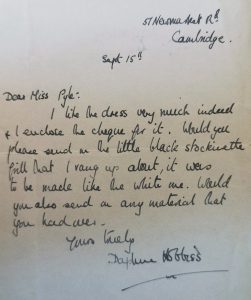 57 Newmarket Rd
Cambridge.
Sept 15th
Dear Miss Pyle:
I like the dress very much indeed
& I enclose the cheque for it. Would you
please send on the little black stockinette
frill that I rang up about, it was
to be made like the white one. Would
you also send on any material that
you had over.
Yours truly
Daphne